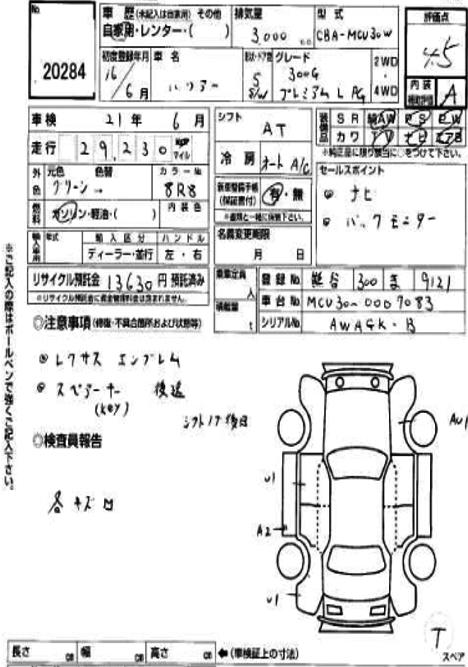 No
20284
車歴(未記入は自家用) その他
自家用・レンター・( )
排気量
3,000 cc
型式
CBA-MCU30W
評価点
4.5
初度登録年月
16年 6月
車名
ハリアー
形状・ドア数
5 S/W
グレード
300G
プレミアム L PG
2WD
・
4WD
内装
補助評価
A
車検 21年 6月
シフト
AT
装備品
SR 純AW PS PW
カワ TV ナビ エアB
※純正品に限り該当に○をつけて下さい。
走行 29,230 km マイル
冷房 オート A/C
セールスポイント
外色
元色 色替 カラーNo
グリーン→ 8R8
新車整備手帳
(保証書付) 有・無
※車両と一緒に保管下さい。
◎ ナビ
◎ バックモニター
燃料 ガソリン・軽油・( ) 内装色
名義変更期限
月 日
輸入車 年式 輸入区分 ハンドル
ディーラー・並行 左・右
リサイクル預託金 13630円 預託済み
※リサイクル預託金に資金管理料金は含まれません。
乗車定員
人
登録No. 熊谷 300 ま 9121
積載量
t
車台No. MCU30-0007083
シリアルNo. AWAGK-B
◎注意事項(修復・不具合箇所および状態等)
◎ レクサス エンブレム
◎ スペアーキー 後送
(key)
シフトノブ後日
◎検査員報告
各キズ凹
AU1
U1
A2
U1
T
スペア
長さ cm 幅 cm 高さ cm ←(車検証上の寸法)
※ご記入の際はボールペンで強くご記入下さい。